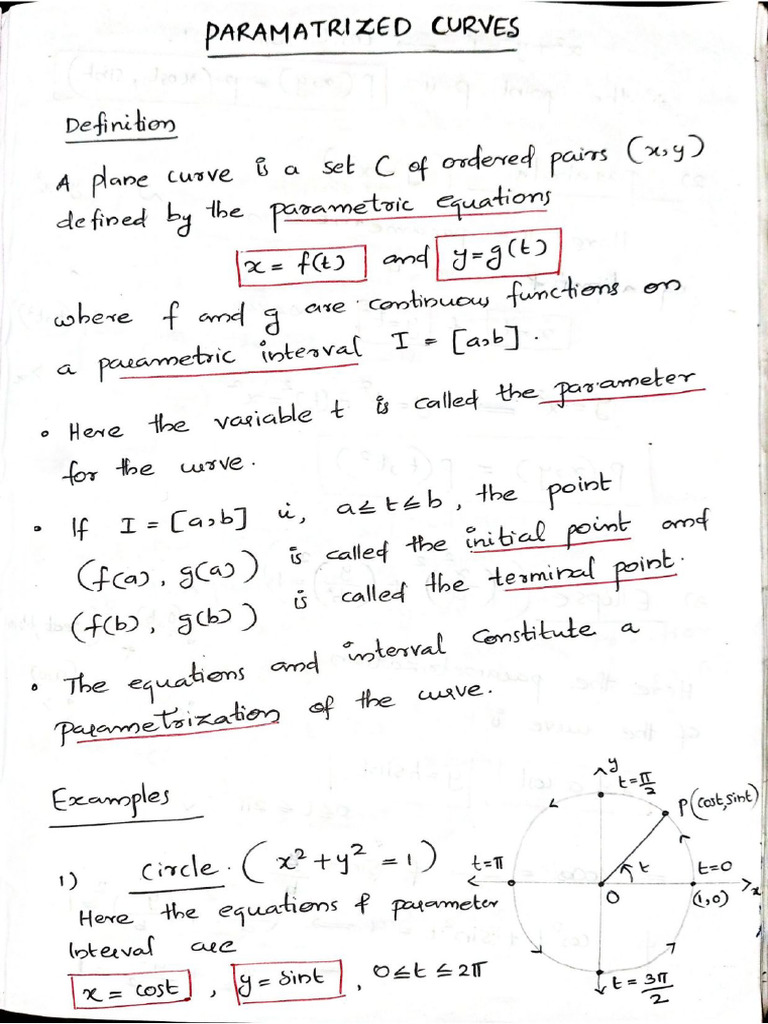 PARAMATRIZED CURVES
Definition
A plane curve is a set C of ordered pairs (x,y)
defined by the parametric equations
x = f(t) and y = g(t)
where f and g are continuous functions on
a parametric interval I = [a,b].
• Here the variable t is called the parameter
for the curve.
• If I = [a,b] ie, a≤t≤b, the point
(f(a), g(a)) is called the initial point and
(f(b), g(b)) is called the terminal point.
• The equations and interval constitute a
parametrization of the curve.
Examples
1) Circle. (x² + y² = 1)
Here the equations & parameter
Interval are
x = cost , y = sint , 0≤t≤2π
y
t = π/2
P(cost, sint)
t=π
t
t=0
O
(1,0)
x
t = 3π/2